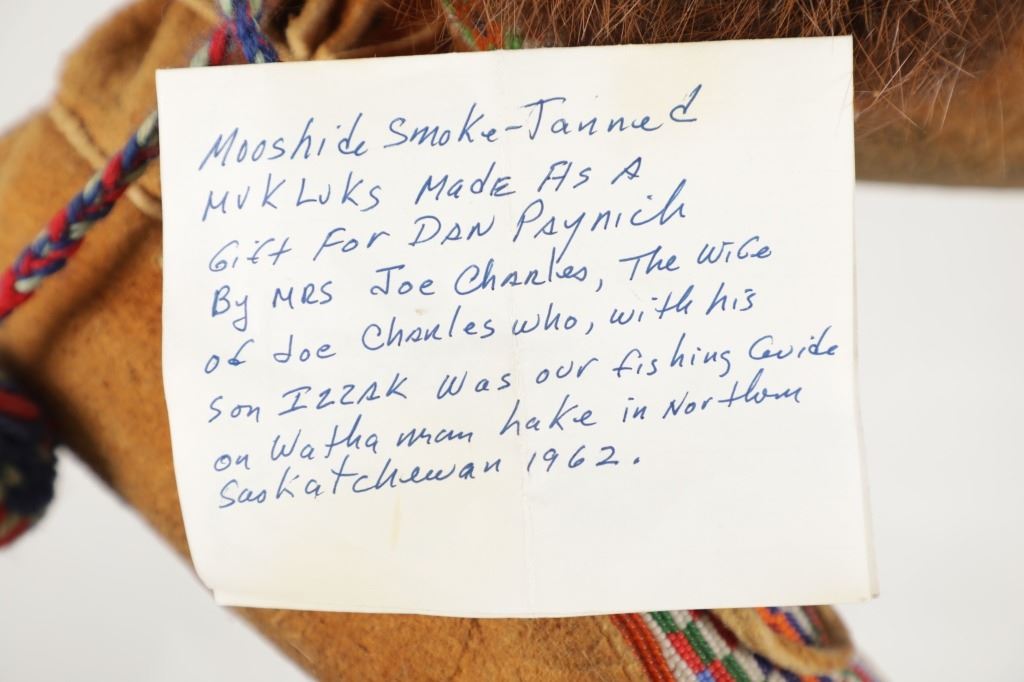 Mooshide Smoke-Tanned
MUKLUKS MADE AS A
Gift For DAN PAynich
By MRS Joe Charles, The Wife
of Joe Charles who, with his
son IZZAK Was our fishing Guide
on Wathaman Lake in Northern
Saskatchewan 1962.